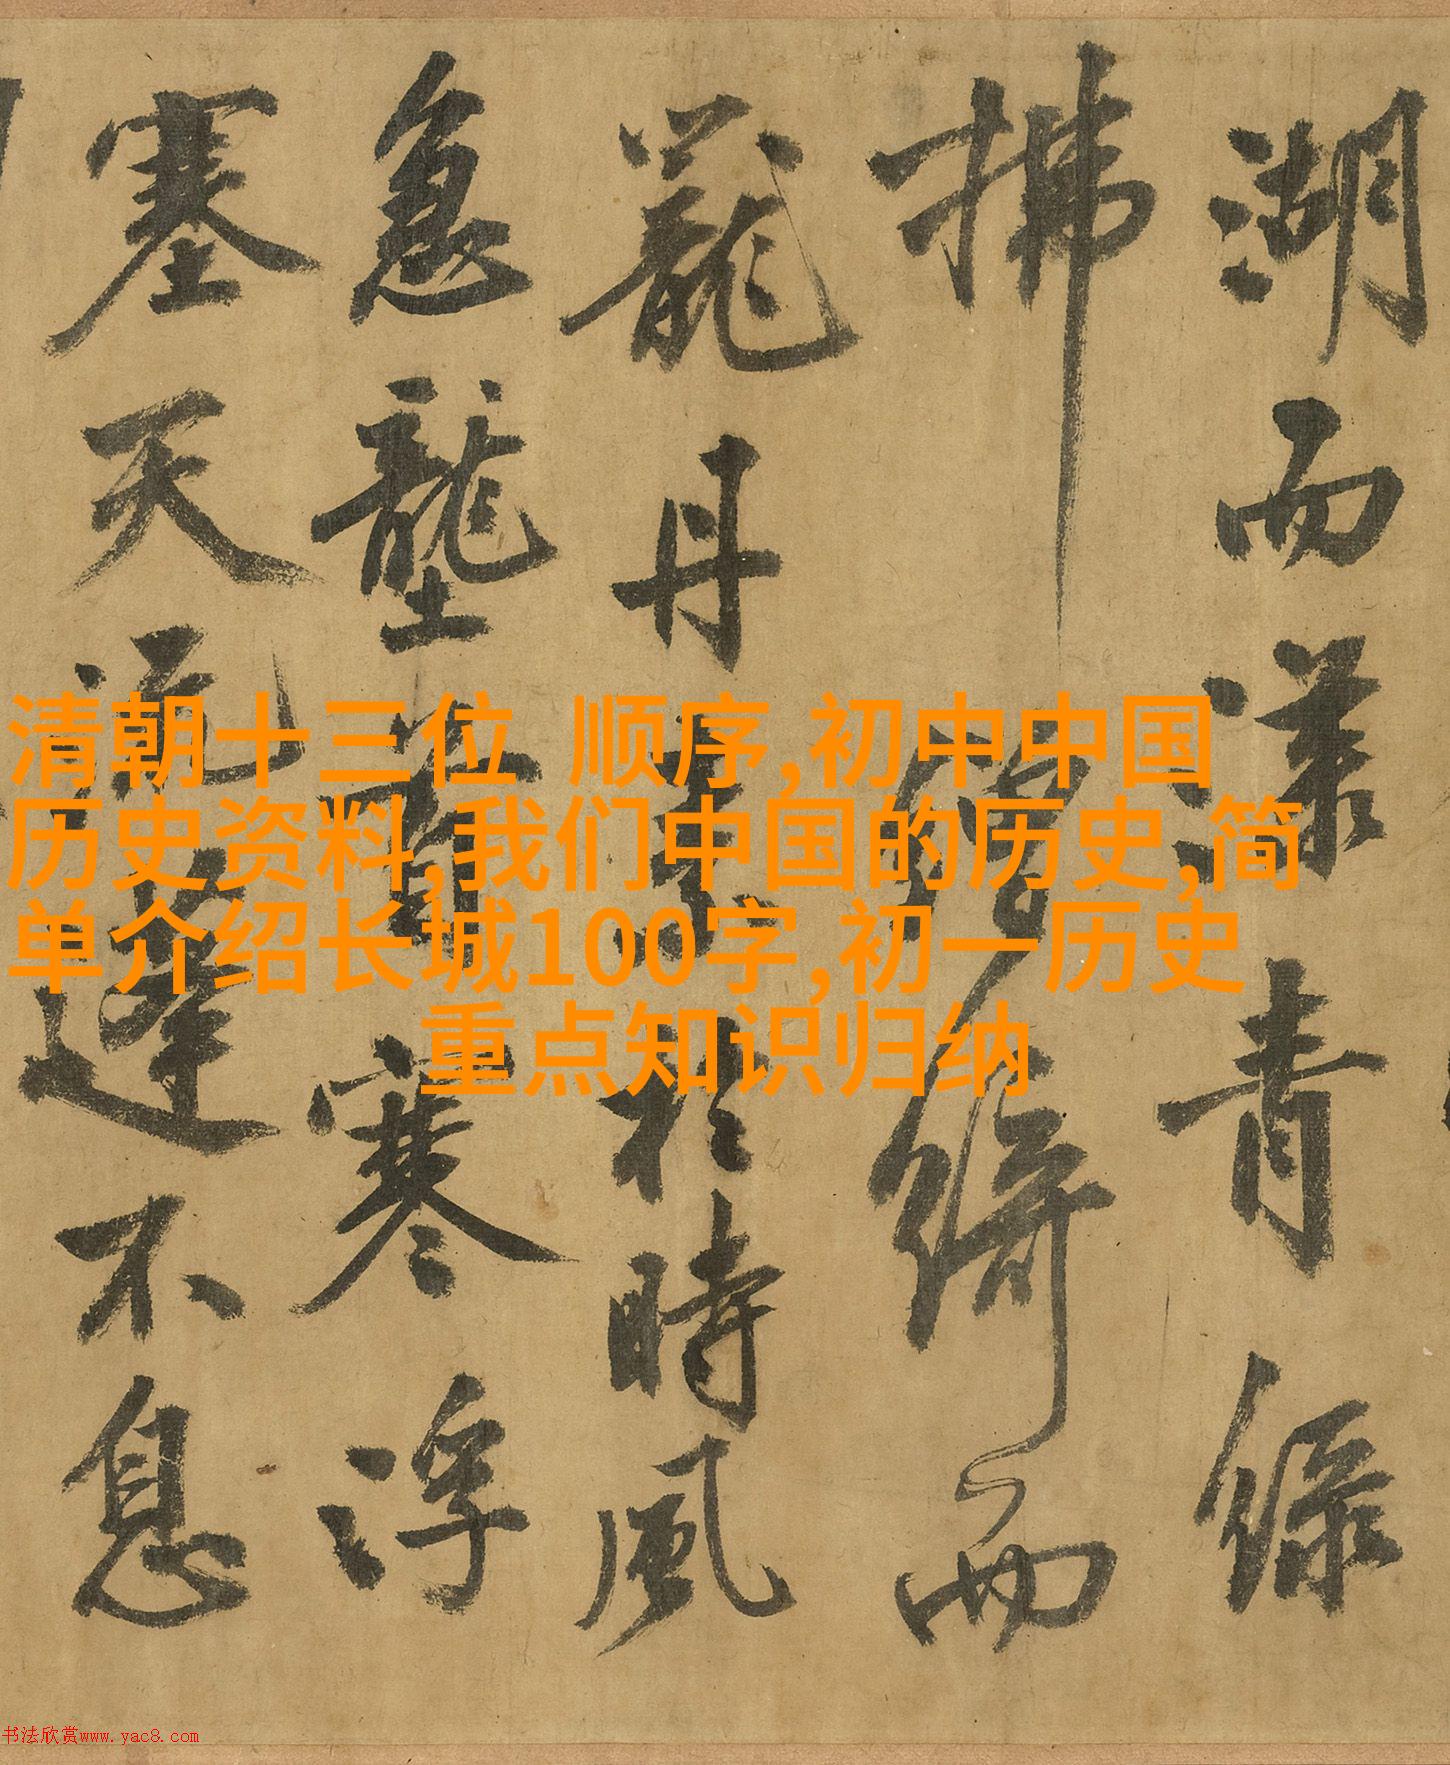 湖而漾青緑
拂繒綺而
蘢丹於時風
急壟首寒浮
塞天流蓬不息
清朝十三位 顺序,初中中国
历史资料,我们中国的历史,简
单介绍长城100字,初一历史
重点知识归纳
书法欣赏www.yac8.com